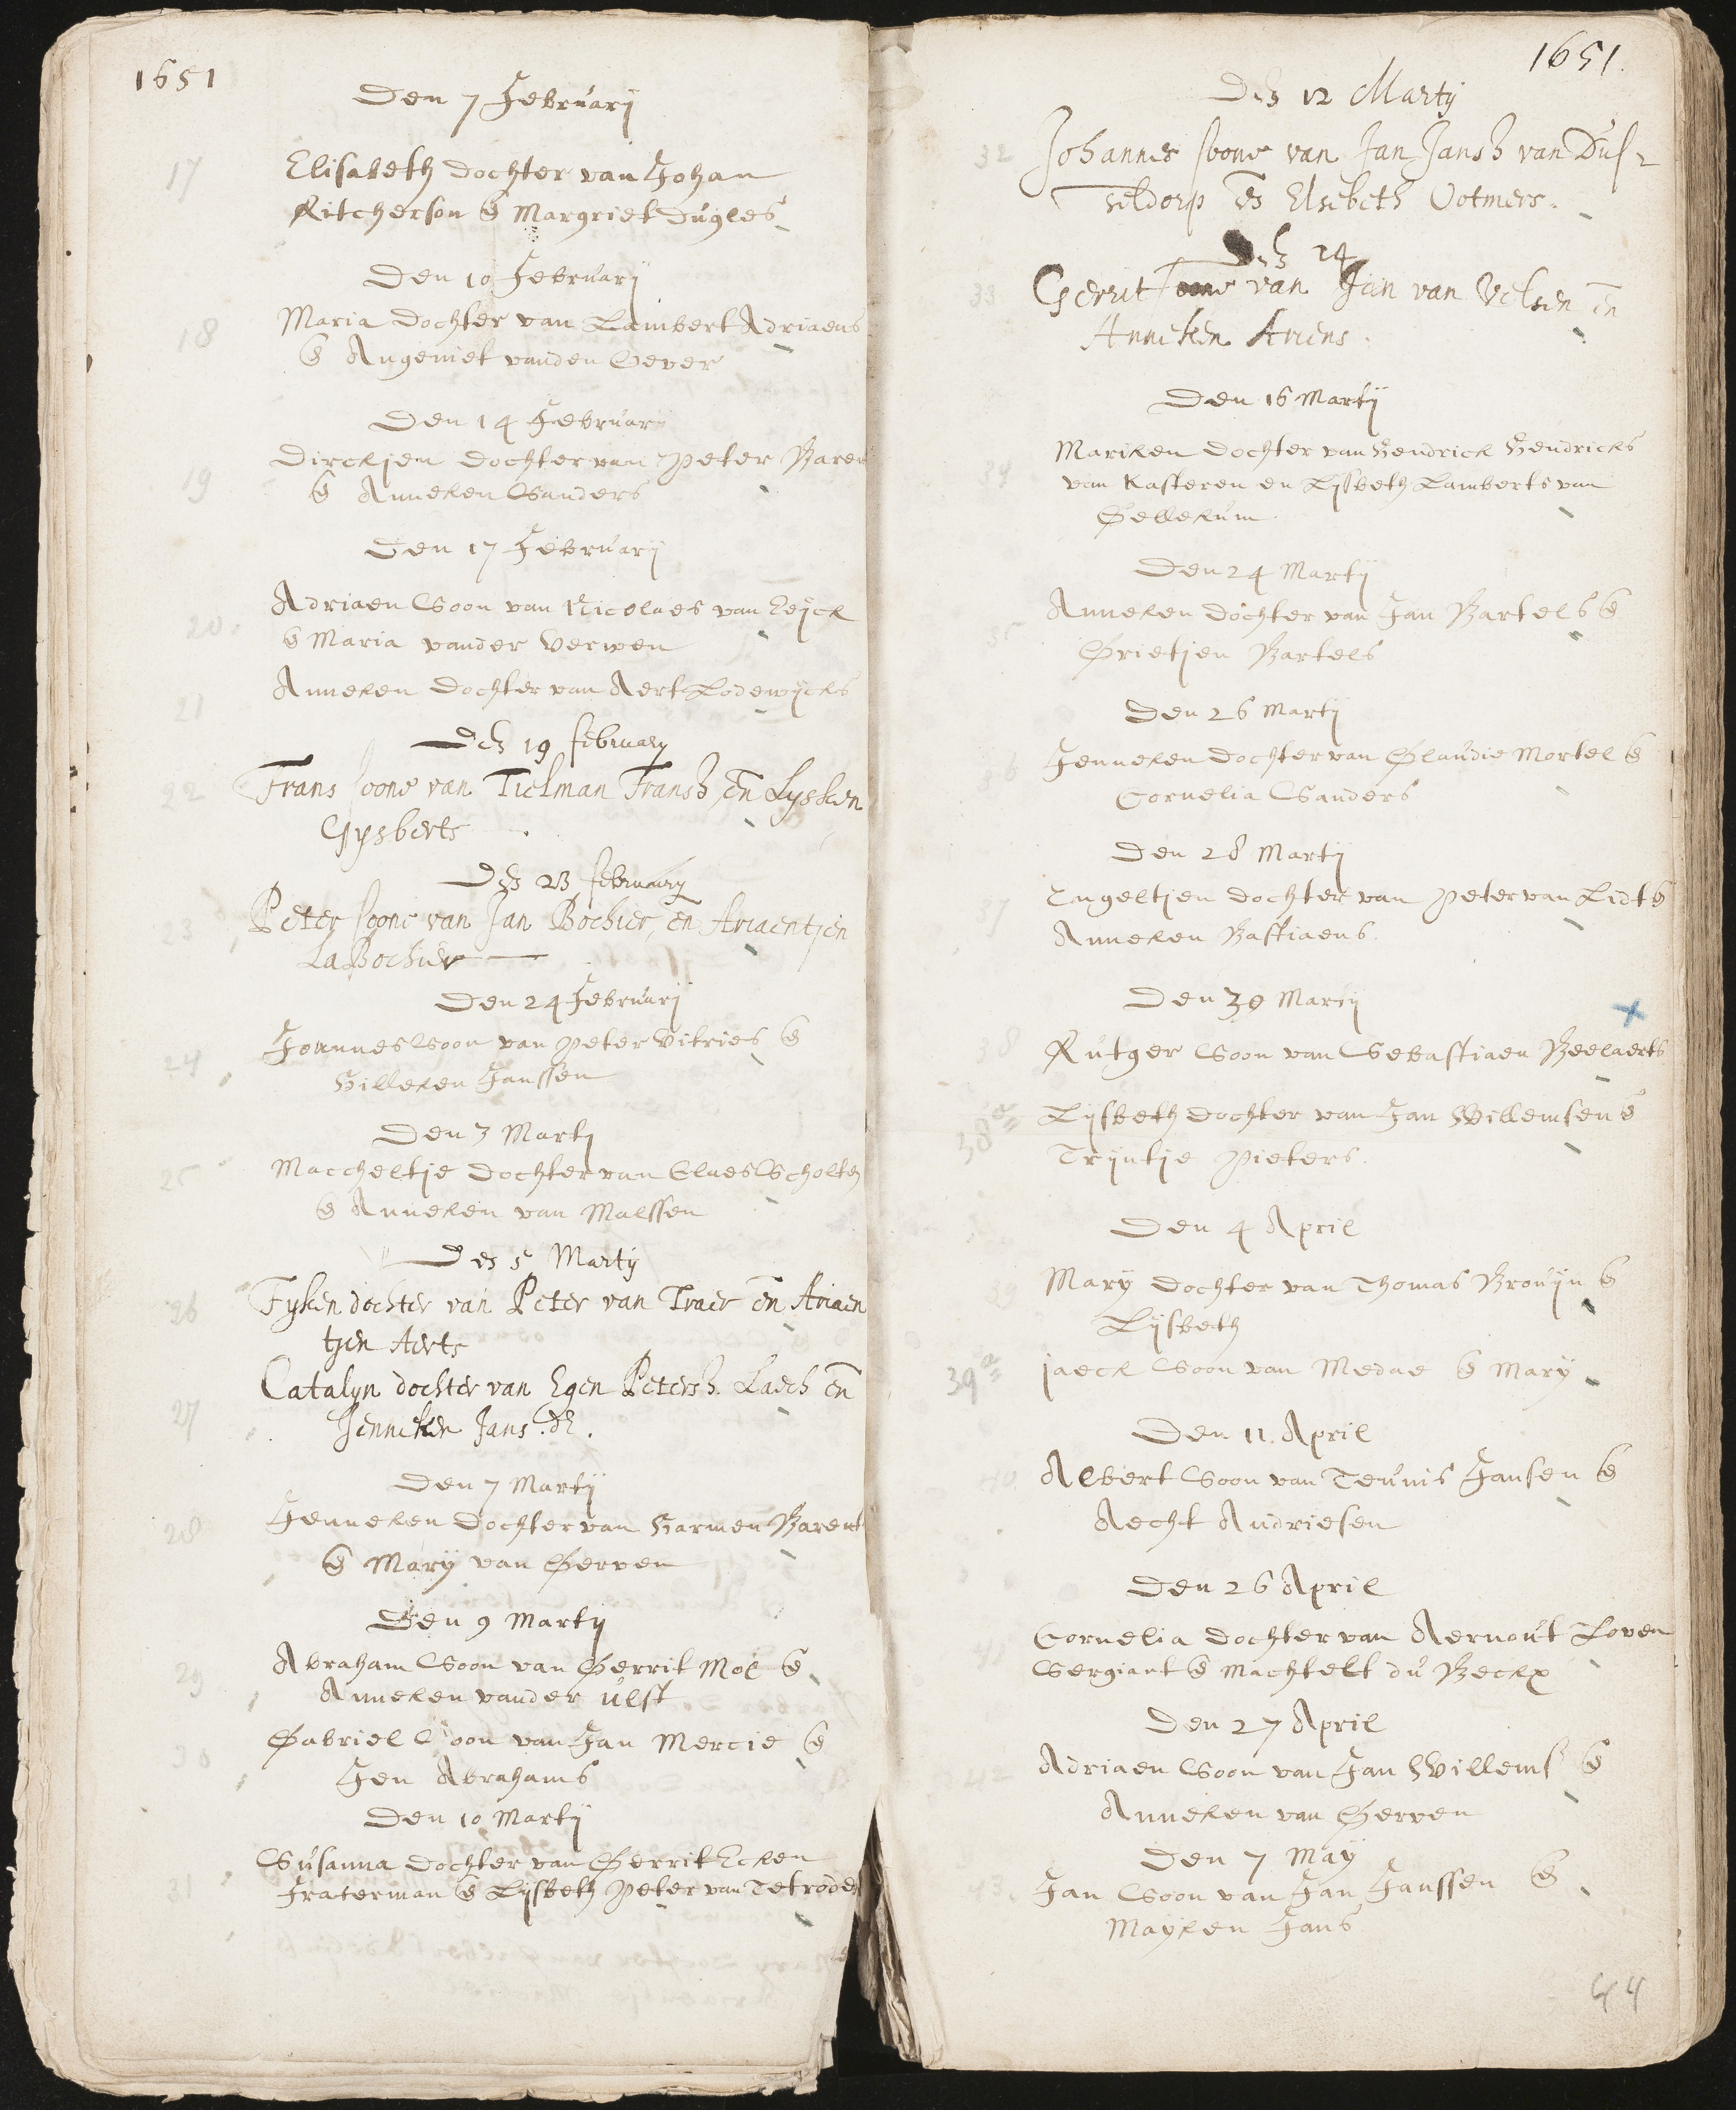 1651
Den 7 Februarij
17
Elisabeth dochter van Johan
Ritcherson e Margriet Dugles
Den 10 Februarij
18
Maria dochter van Lambert Adriaens
e Angeniet vanden Gever
Den 14 Februarij
19
Dirckjen dochter van Peter Baren
e Anneken Sanders
Den 17 Februarij
20
Adriaen Soon van Nicolaes van Eijck
e Maria vander Verwen
21
Anneken dochter van Aert Lodewijcks
Den 19 february
22
Frans soone van Tielman Fransz en Lysken
Gysberts
Den 23 february
23
Peter soone van Jan Bochier, en Ariaentjen
La Bochier
Den 24 Februarij
24
Joannes Soon van Peter Vitries e
Hilleken Janssen
Den 3 Martij
25
Maccheltje dochter van Claes Scholten
e Anneken van Malssen
Den 5 Martij
26
Fyken dochter van Peter van Traer en Ariaen
tjen Aerts
27
Catalyn dochter van Egen Petersz. Laech en
Jenneken Jans. dr.
Den 7 Martij
28
Jenneken dochter van Harmen Barent
e Marij van Gerven
Den 9 Martij
29
Abraham Soon van Gerrit Mol e
Anneken vander Ulft
30
Gabriel Soon van Jan Mercie e
Jen Abrahams
Den 10 Martij
31
Susanna dochter van Gerrit Ecken
Fraterman e Lijsbeth Peter van Tetroden
1651.
Den 12 Martij
32
Johannes soone van Jan Jansz van Dus-
seldorp en Elsebeth Votmers.
Den 24
33
Gerrit soone van Jan van Velsen en
Anneken Ariens.
Den 16 Martij
34
Mariken dochter van Hendrick Hendricks
van Kasteren en Lijsbeth Lamberts van
Gellekum
Den 24 Martij
35
Anneken dochter van Jan Bartels e
Grietjen Bartels
Den 26 Martij
36
Jenneken dochter van Glaudie Mortel e
Cornelia Sanders
Den 28 Martij
37
Engeltjen dochter van Peter van Lidt e
Anneken Bastiaens.
Den 30 Martij
38
Rutger Soon van Sebastiaen Beelaerts
38a
Lijsbeth dochter van Jan Willemsen e
Trijntje Pieters.
Den 4 April
39
Marij dochter van Thomas Brouijn e
Lijsbeth
39a
jaeck Soon van Medae e Marij
Den 11. April
40
Albert Soon van Teunis Jansen e
Aecht Andriesen
Den 26 April
41
Cornelia dochter van Aernout Loven
Sergiant e Machtelt du Beckx
Den 27 April
42
Adriaen Soon van Jan Willems e
Anneken van Gerven
Den 7 May
43.
Jan Soon van Jan Janssen e
Mayken Jans
44